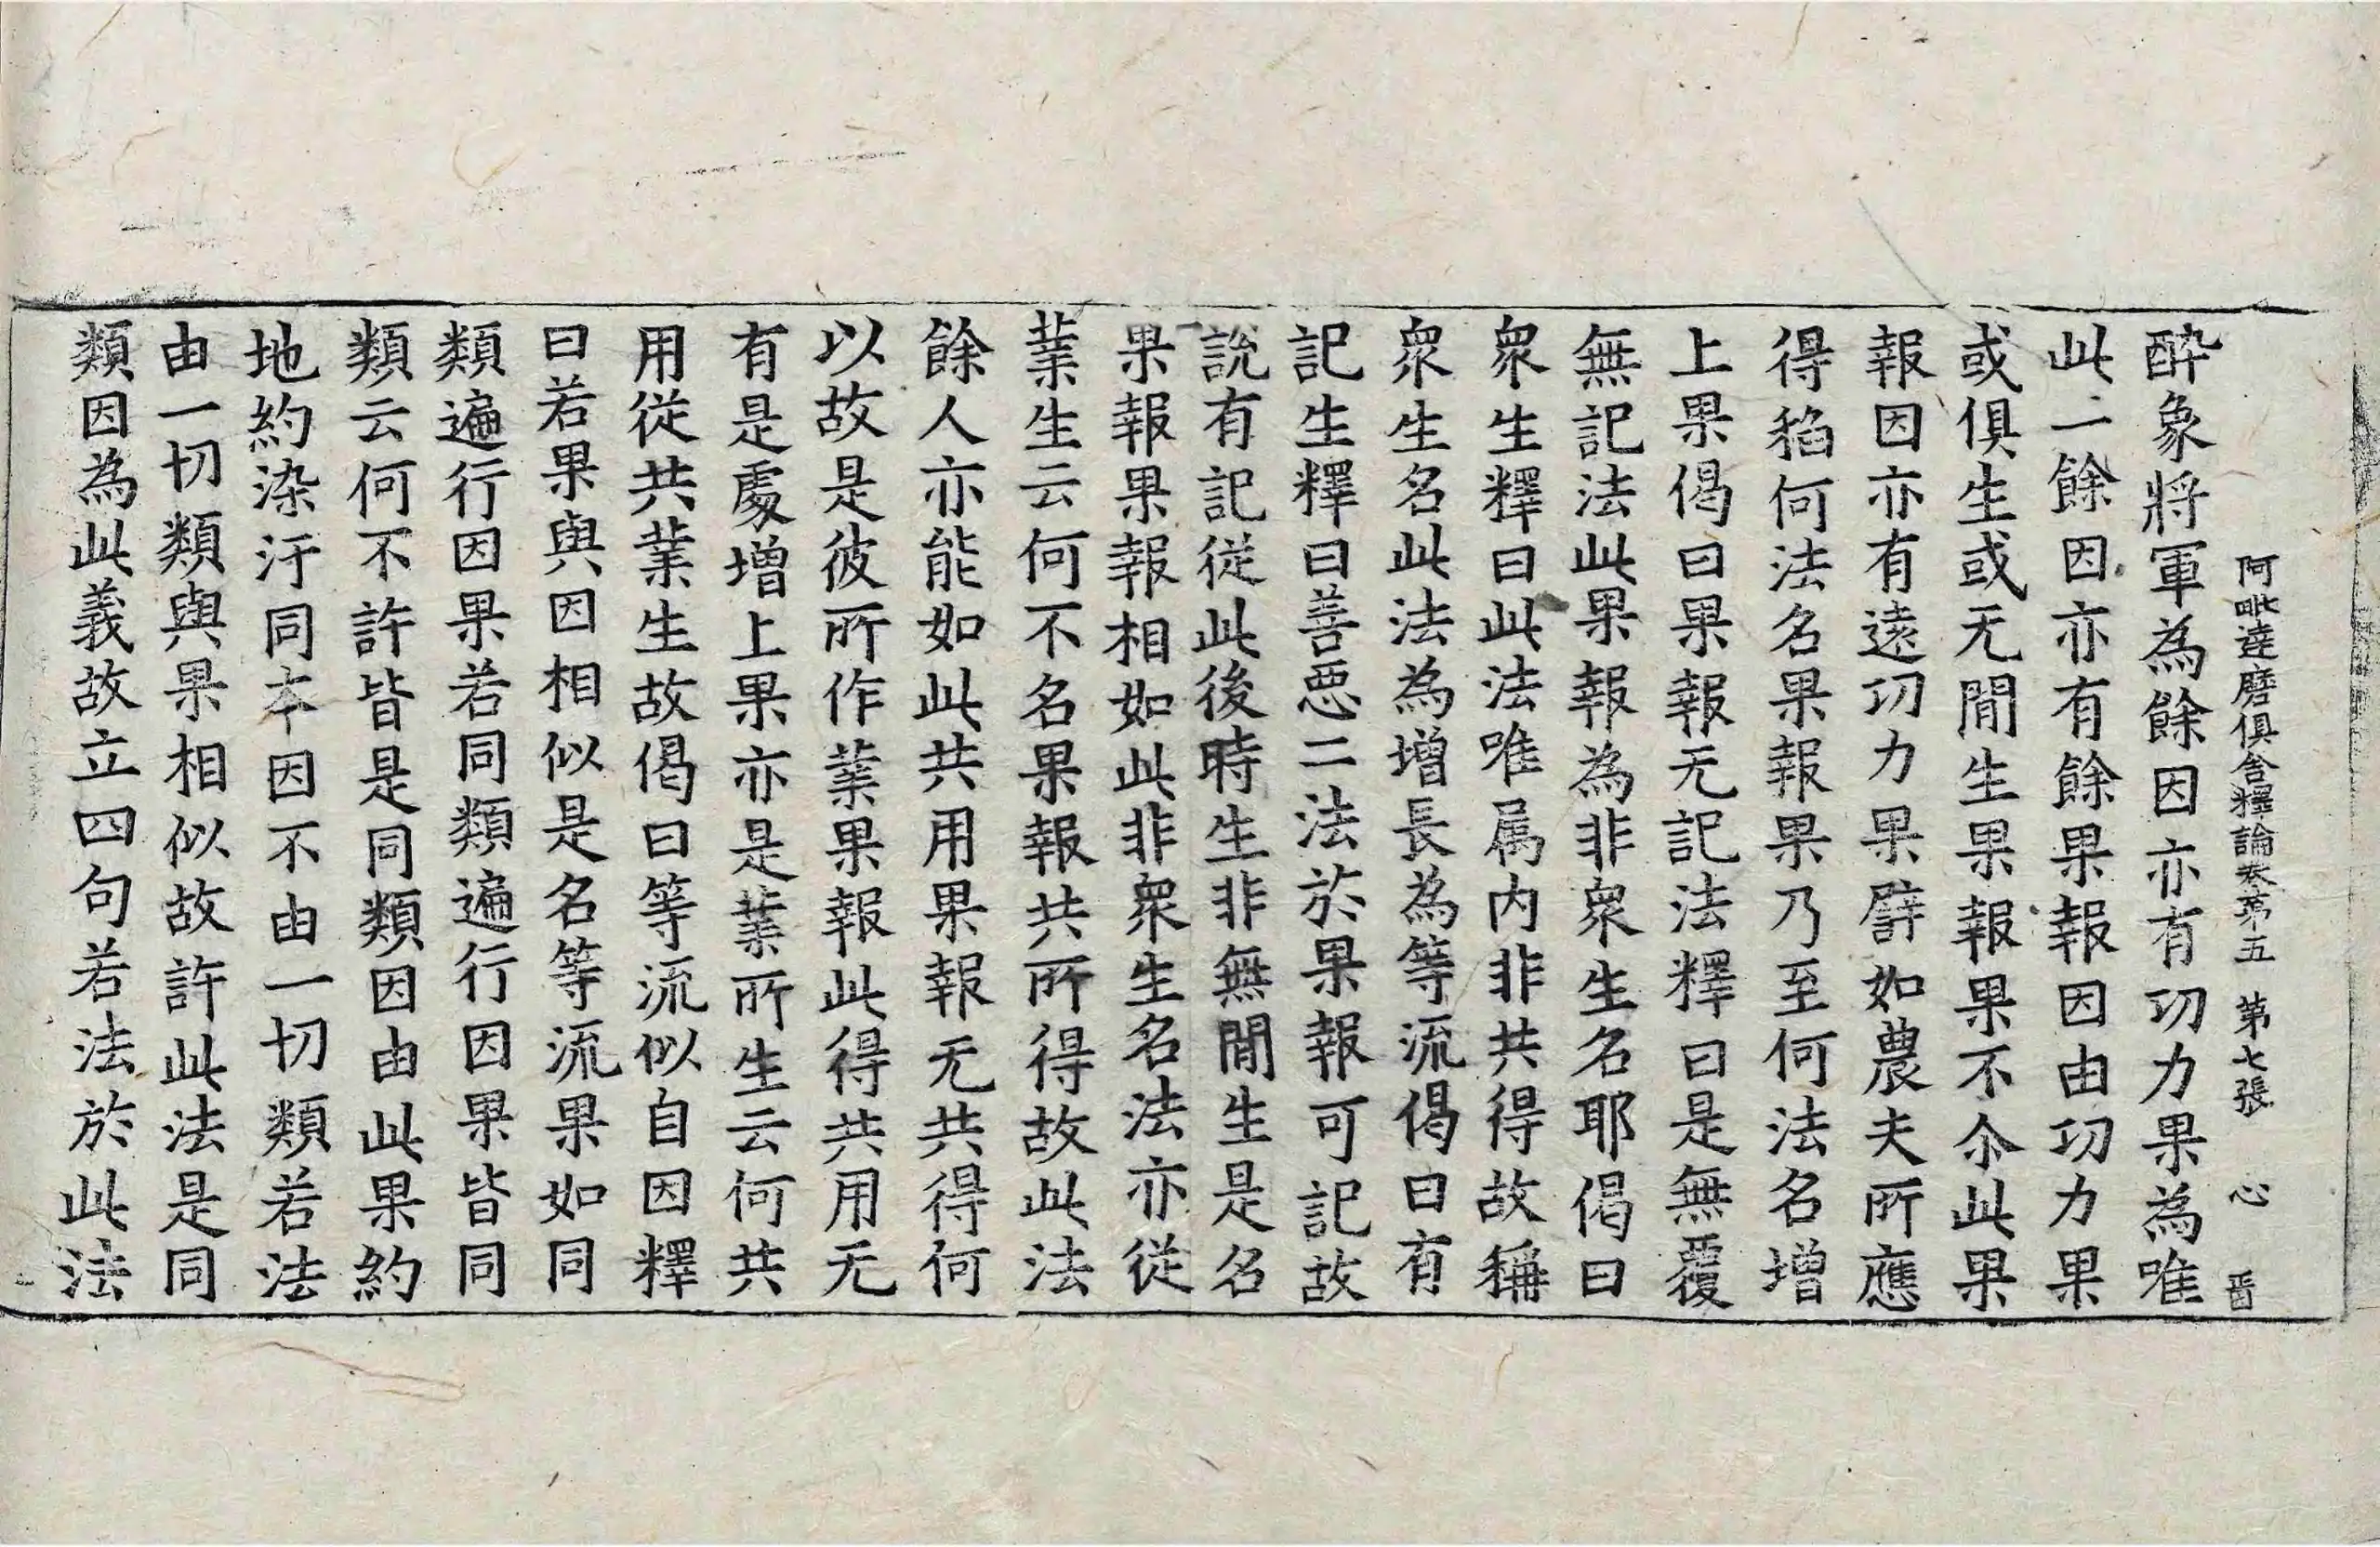 阿毗達磨俱舍釋論卷第五 第七張 心 晋
醉象將軍為餘因亦有功力果為唯
此二餘因亦有餘果報因由功力果
或俱生或无間生果報果不尒此果
報因亦有遠功力果譬如農夫所應
得稻何法名果報果乃至何法名增
上果偈曰果報无記法釋曰是無覆
無記法此果報為非衆生名耶偈曰
衆生釋曰此法唯属内非共得故稱
衆生名此法為增長為等流偈曰有
記生釋曰善悪二法於果報可記故
說有記從此後時生非無間生是名
果報果報相如此非衆生名法亦從
業生云何不名果報共所得故此法
餘人亦能如此共用果報无共得何
以故是彼所作業果報此得共用无
有是處增上果亦是業所生云何共
用從共業生故偈曰等流似自因釋
曰若果與因相似是名等流果如同
類遍行因果若同類遍行因果皆同
類云何不許皆是同類因由此果約
地約染汙同夲因不由一切類若法
由一切類與果相似故許此法是同
類因為此義故立四句若法於此法